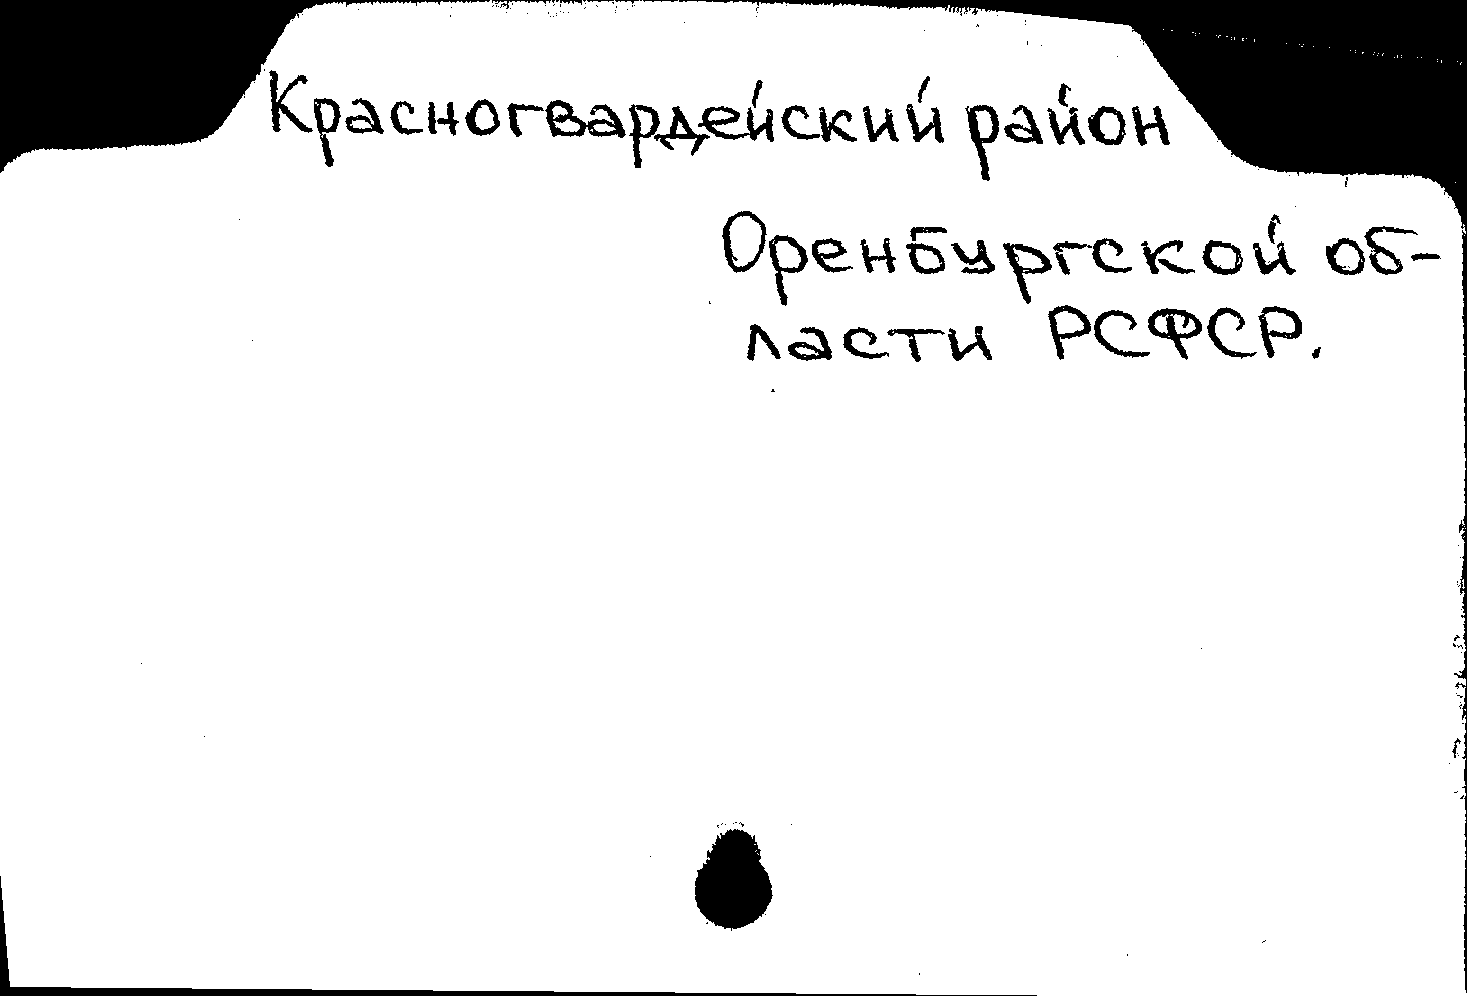 Красногвардейский район
Оренбургской об-
ласти РСФСР.